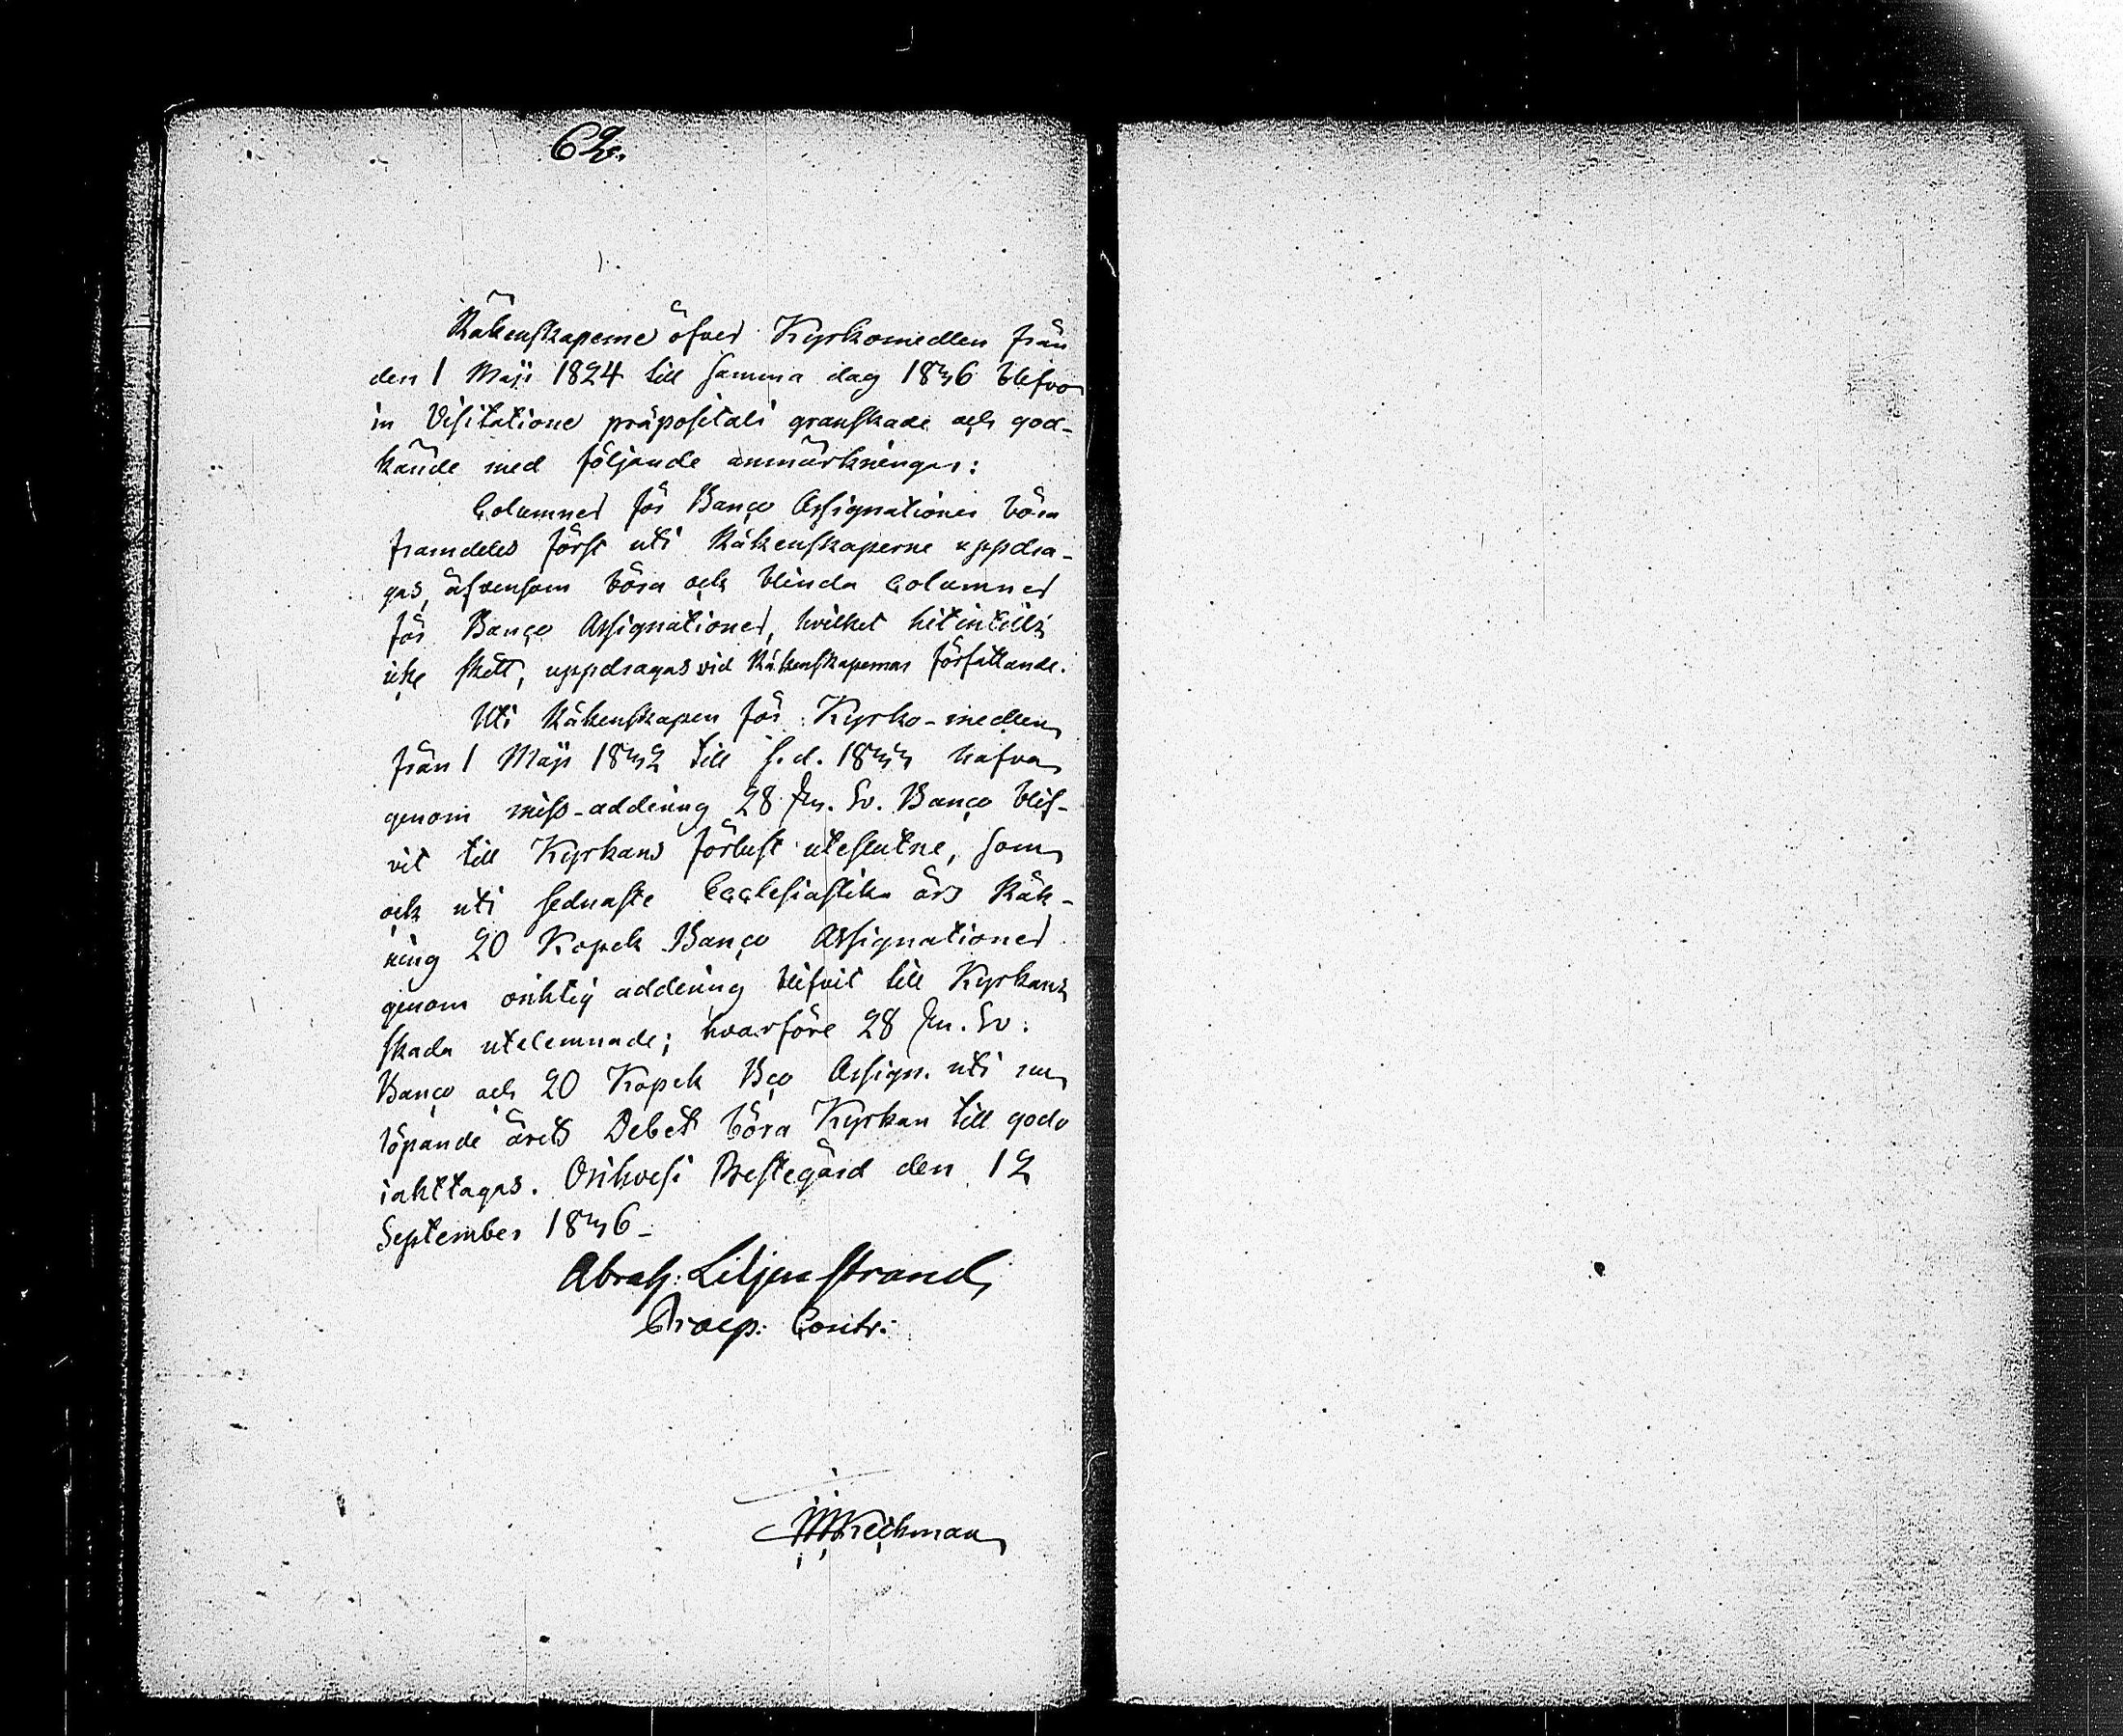 62.
Räkenskaperne öfver Kyrkomedlen från
den 1 Maji 1824 till samma dag 1836 blefvo
in Visitatione præpositali granskade och god-
kände med följande anmärkningar:
Columner för Banco Assignationer böra
framdeles först uti Räkenskaperne uppdra-
gas, äfvensom böra ock blinda Columner
för Banco Assignationer, hvilket hitintills
icke skett, uppdragas vid Räkenskapernas författande.
Uti Räkenskapen för Kyrko-medlen
från 1 Maji 1832 till s.d. 1833 hafva
genom miss-addering 28 sk. Sv. Banco blif-
vit till Kyrkans förlust uteslutne, som
ock uti sednaste Ecclesiastik års Räk-
ning 20 Kopek Banco Assignationer
genom oriktig addering blifvit till Kyrkans
skada utelemnade; hvarföre 28 sk. Sv.
Banco och 20 Kopek Bco Assign. uti nu
löpande årets Debet böra Kyrkan till godo
iakttagas. Orihvesi Prestegård den 12
September 1836_
Abrah: Liljenstrand,
Præp: Contr: